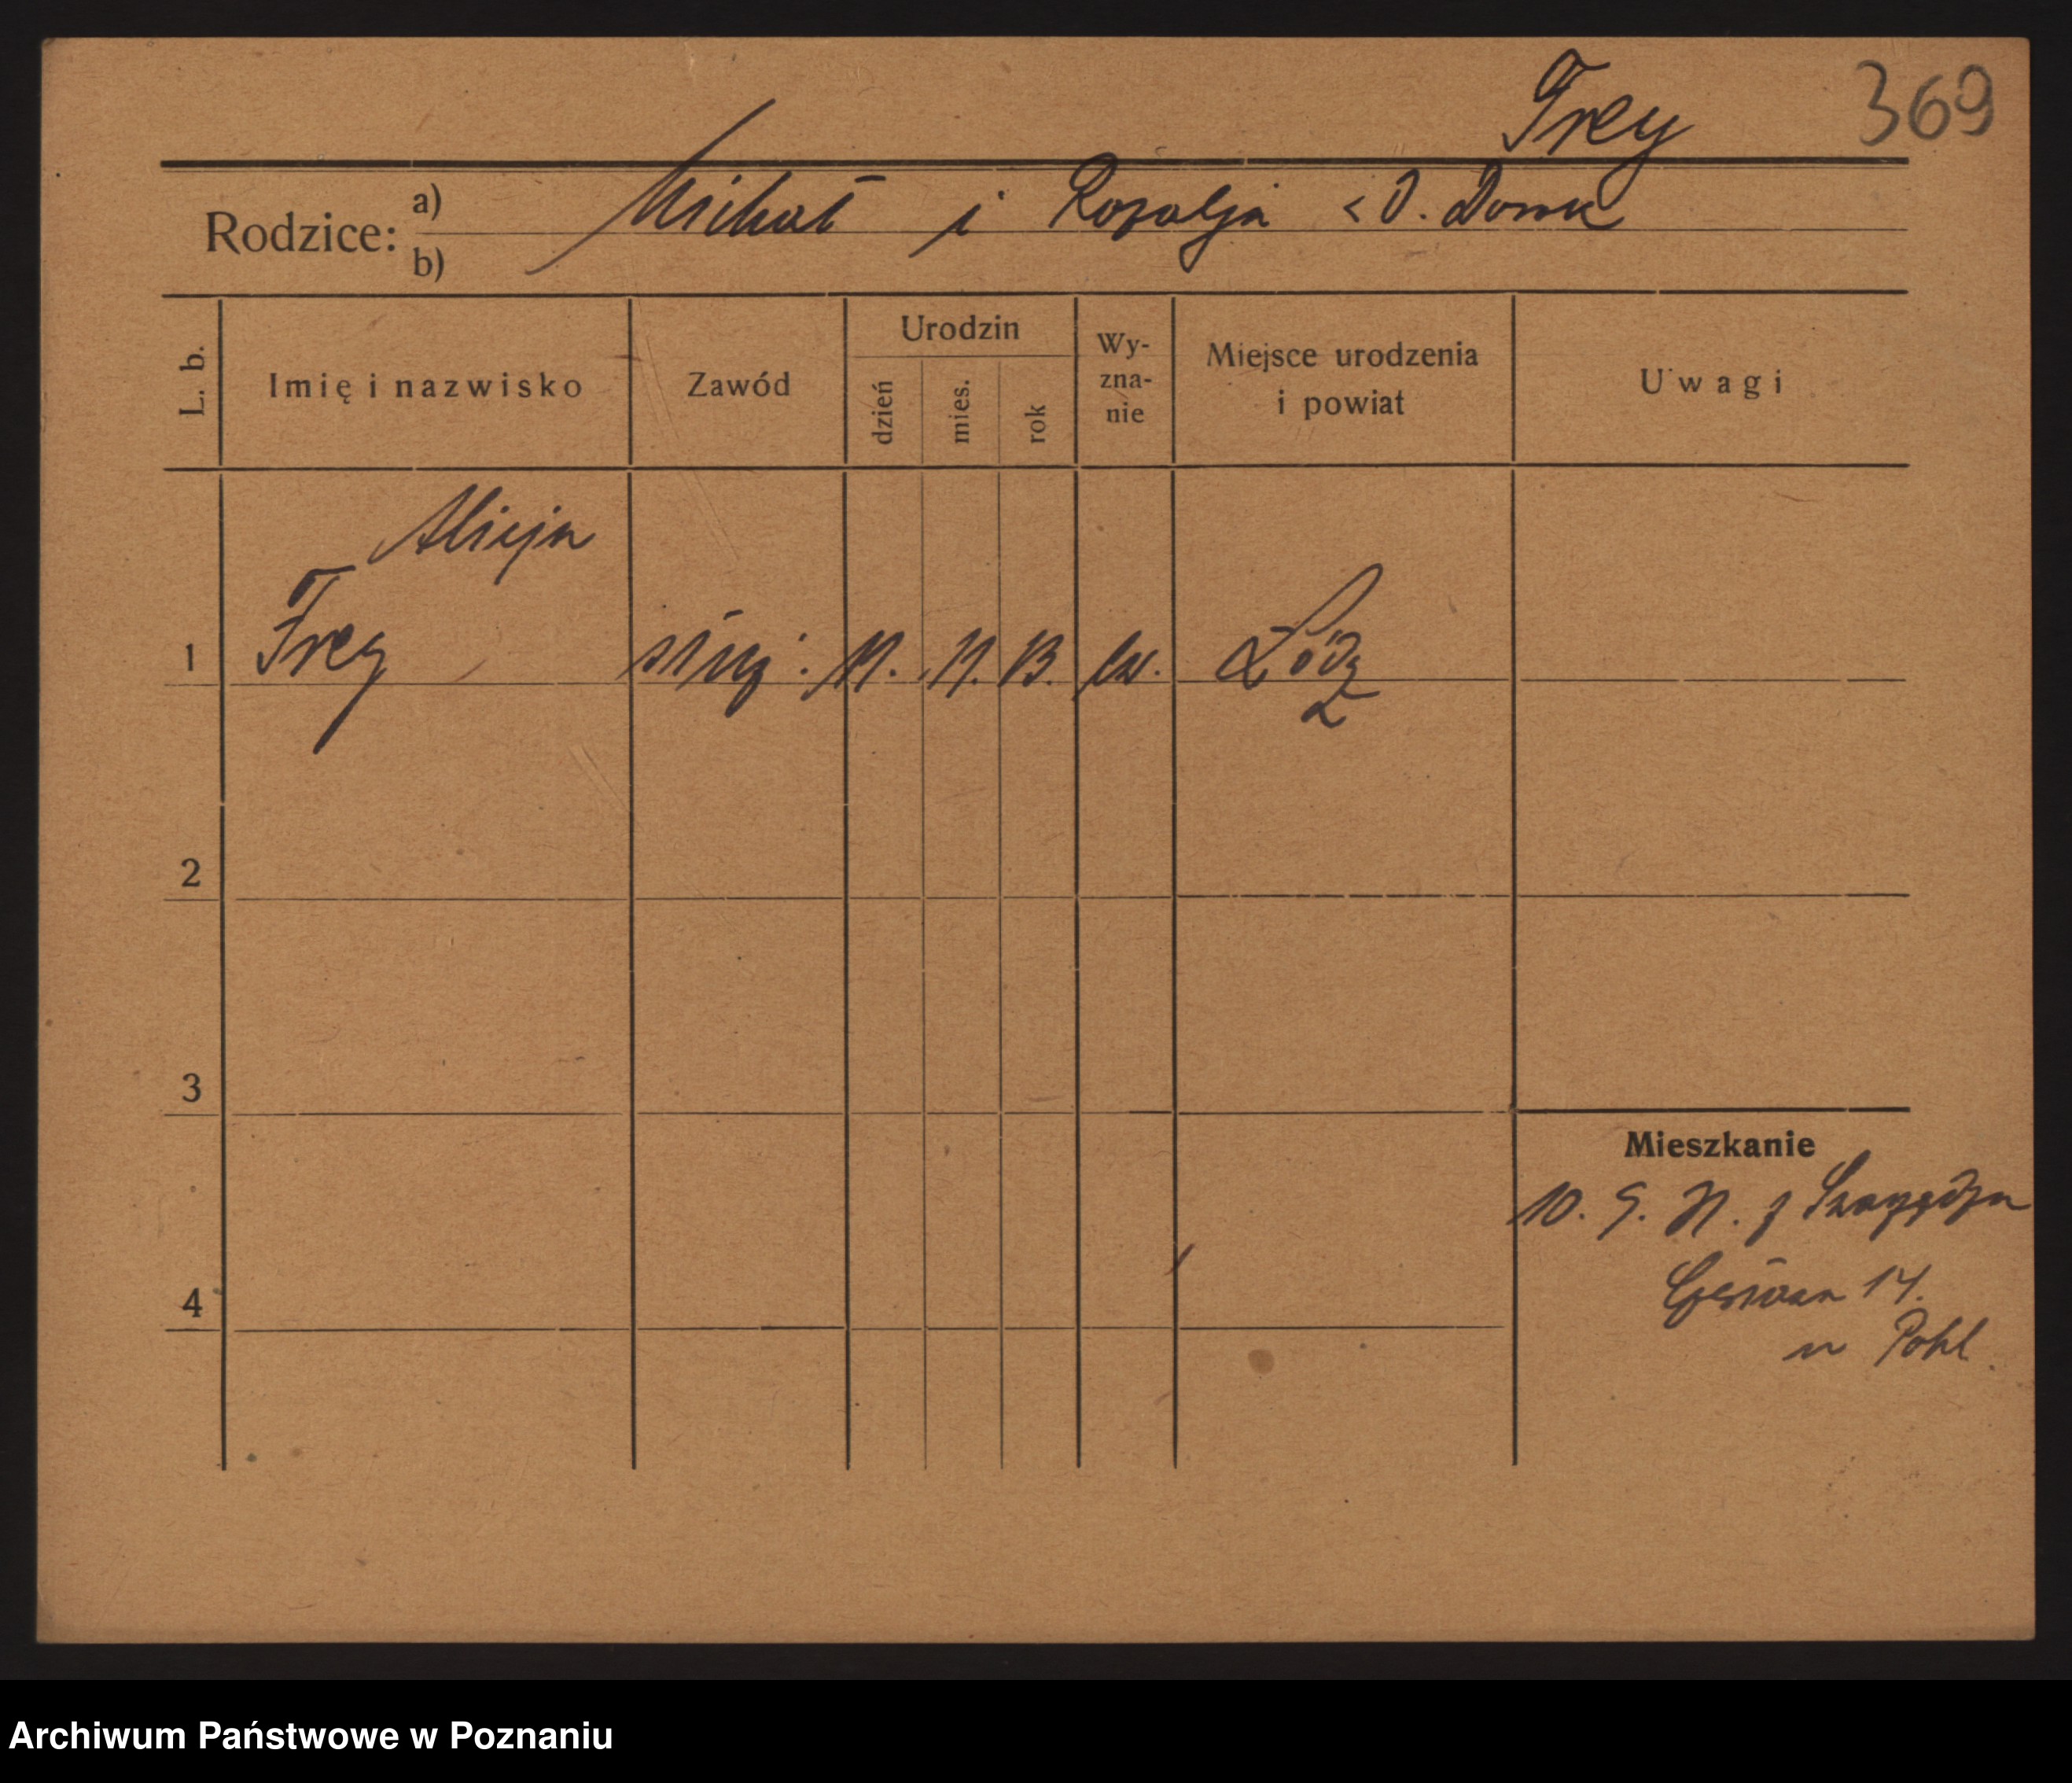 Frey 369
Rodzice: a) Michał i Rozalja z d.
b)
L. b. Imię i nazwisko Zawód Urodzin dzień mies. rok Wy-zna-nie Miejsce urodzenia i powiat Uwagi
Alicja
1 Frey służ. 11. 11. 13. ew. Łódź
2
3
Mieszkanie
10. 9. z
4
14.
u Pohl.
Archiwum Państwowe w Poznaniu